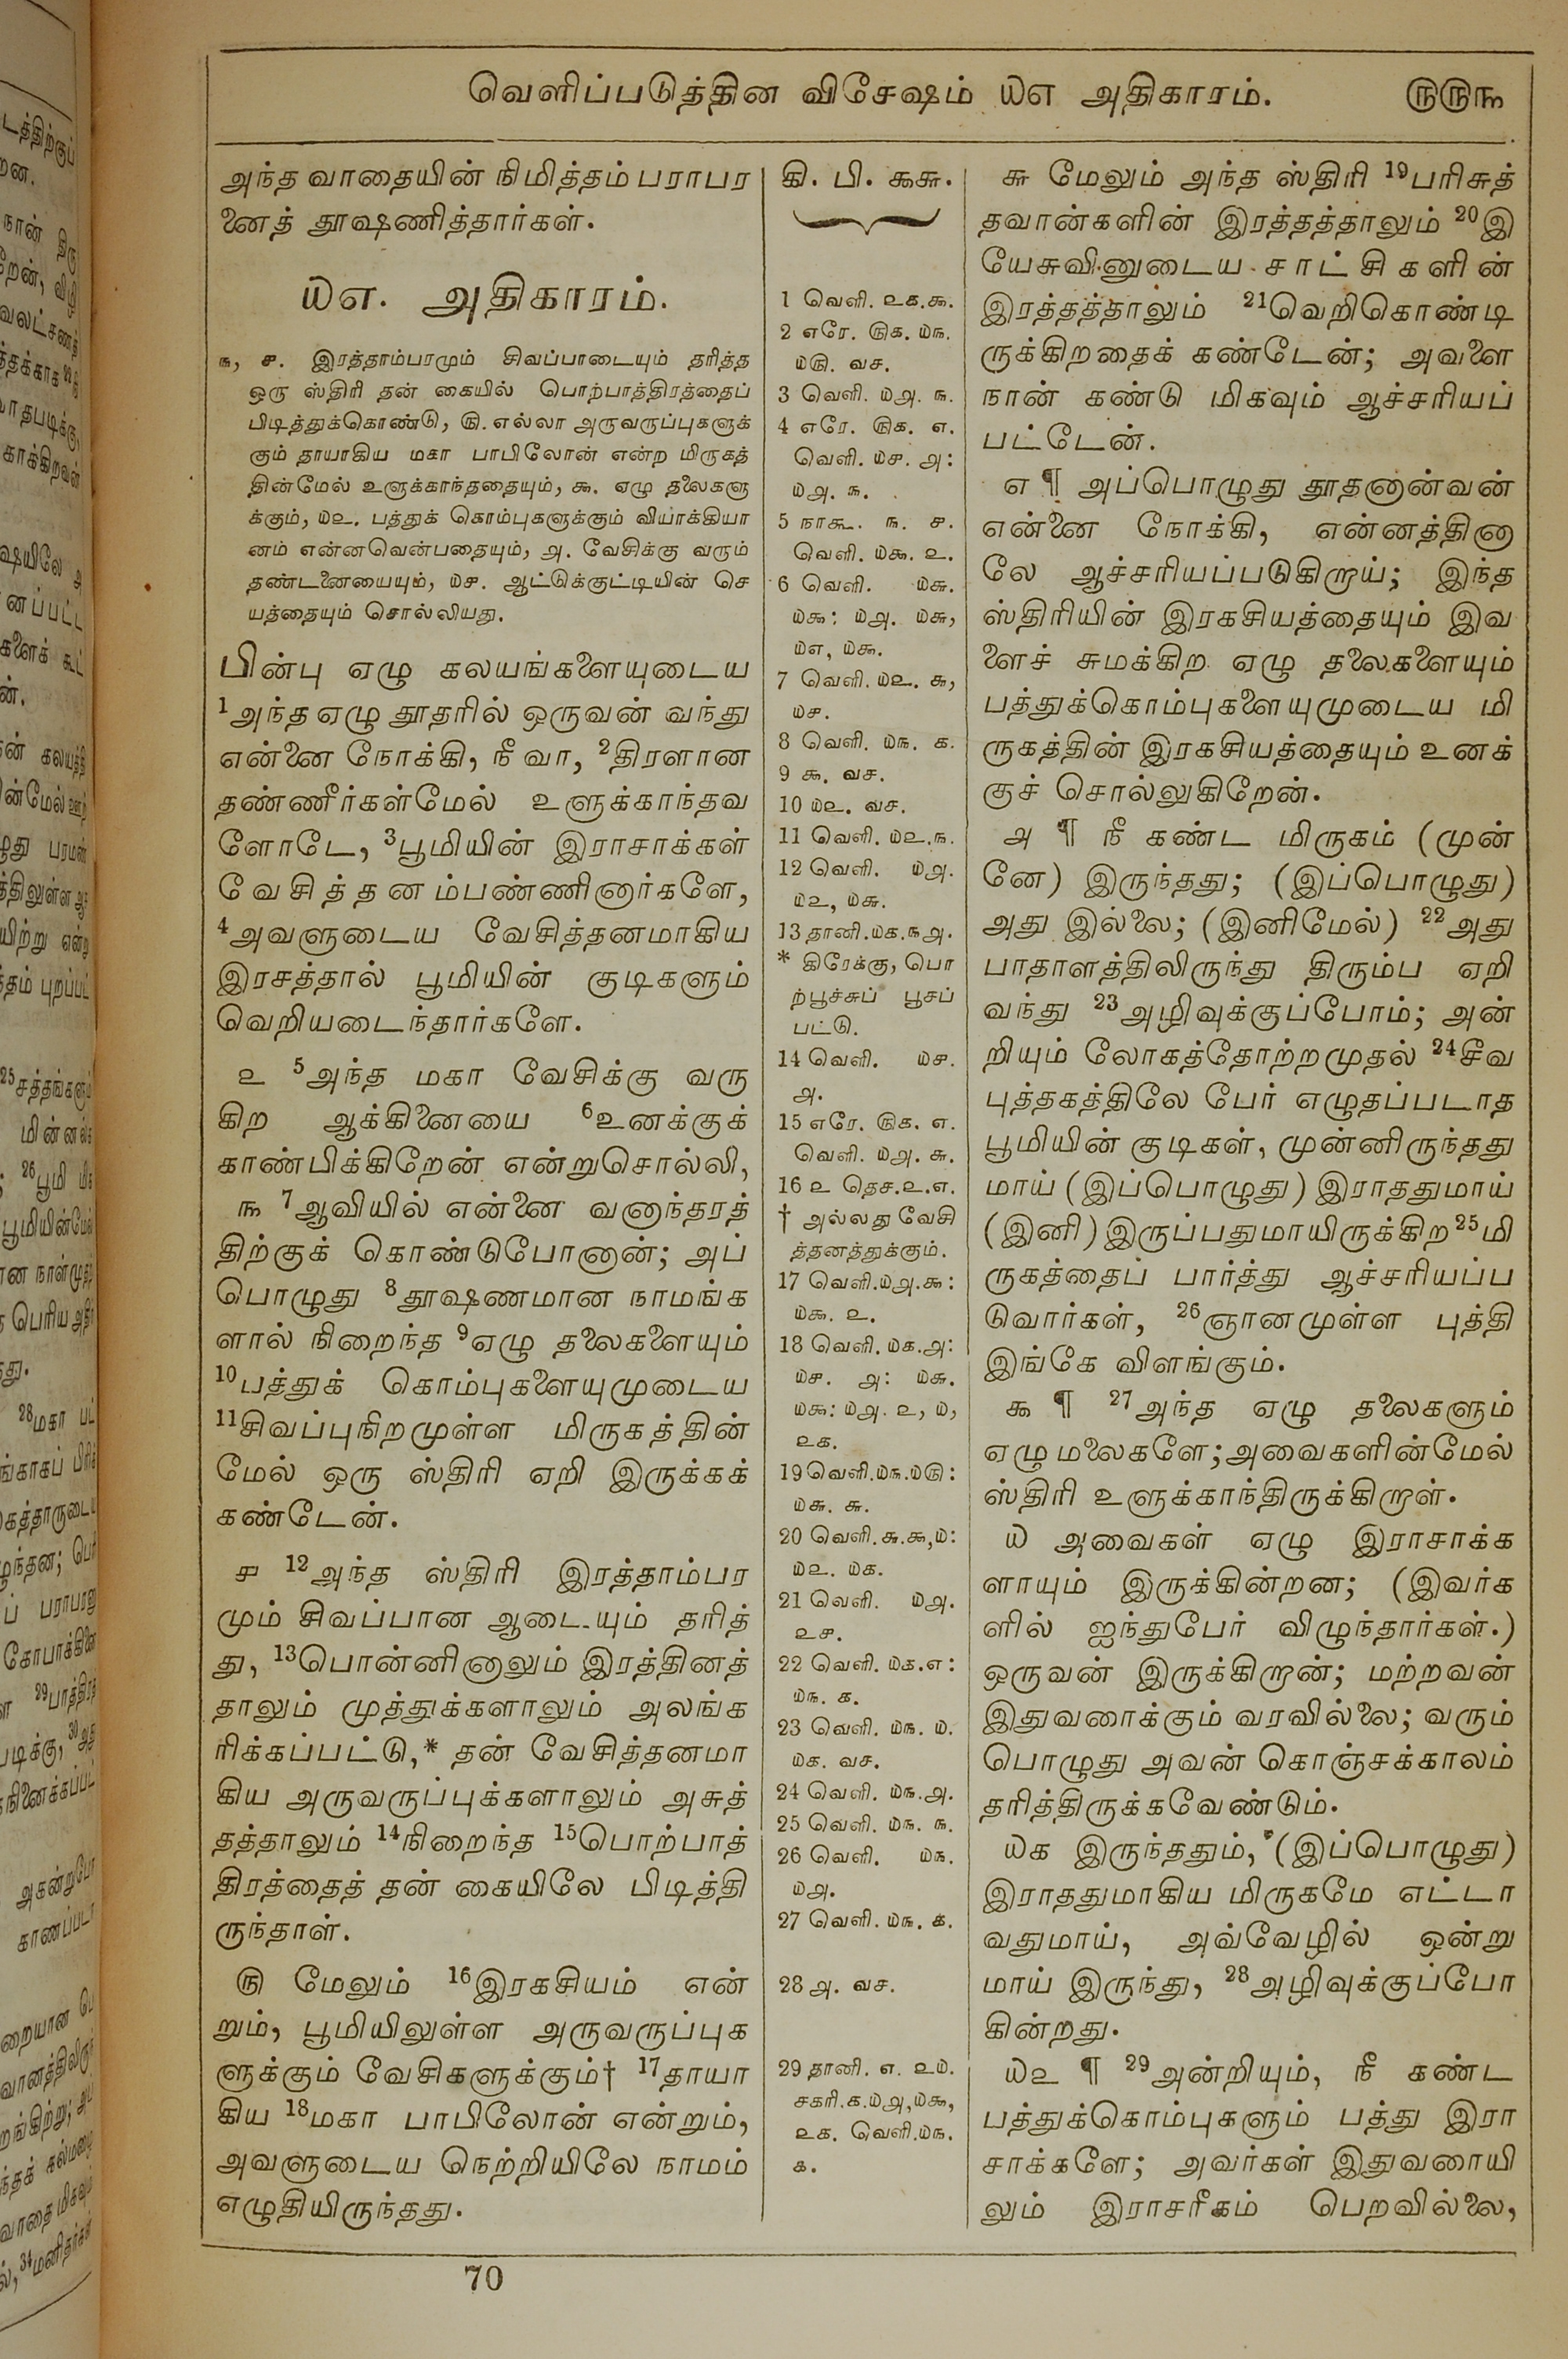 வெளிப்படுத்தின விசேஷம் ௰௭ அதிகாரம். ௫௫௩
அந்த வாதையின் நிமித்தம் பராபர
னைத் தூஷணித்தார்கள்.
௰௭. அதிகாரம்.
௩, ௪. இரத்தாம்பரமும் சிவப்பாடையும் தரித்த
ஒரு ஸ்திரி தன் கையில் பொற்பாத்திரத்தைப்
பிடித்துக்கொண்டு, ௫. எல்லா அருவருப்புகளுக்
கும் தாயாகிய மகா பாபிலோன் என்ற மிருகத்
தின்மேல் உளுக்காந்ததையும், ௯. ஏழு தலைகளு
க்கும், ௰௨. பத்துக் கொம்புகளுக்கும் வியாக்கியா
னம் என்னவென்பதையும், ௮. வேசிக்கு வரும்
தண்டனையையும், ௰௪. ஆட்டுக்குட்டியின் செ
யத்தையும் சொல்லியது.
பின்பு ஏழு கலயங்களையுடைய
1அந்த ஏழு தூதரில் ஒருவன் வந்து
என்னை நோக்கி, நீ வா, 2திரளான
தண்ணீர்கள்மேல் உளுக்காந்தவ
ளோடே, 3பூமியின் இராசாக்கள்
வேசித்தனம்பண்ணினார்களே,
4அவளுடைய வேசித்தனமாகிய
இரசத்தால் பூமியின் குடிகளும்
வெறியடைந்தார்களே.
௨ 5அந்த மகா வேசிக்கு வரு
கிற ஆக்கினையை 6உனக்குக்
காண்பிக்கிறேன் என்றுசொல்லி,
௩ 7ஆவியில் என்னை வனாந்தரத்
திற்குக் கொண்டுபோனான்; அப்
பொழுது 8தூஷணமான நாமங்க
ளால் நிறைந்த 9ஏழு தலைகளையும்
10பத்துக் கொம்புகளையுமுடைய
11சிவப்புநிறமுள்ள மிருகத்தின்
மேல் ஒரு ஸ்திரி ஏறி இருக்கக்
கண்டேன்.
௪ 12அந்த ஸ்திரி இரத்தாம்பர
மும் சிவப்பான ஆடையும் தரித்
து, 13பொன்னினாலும் இரத்தினத்
தாலும் முத்துக்களாலும் அலங்க
ரிக்கப்பட்டு,* தன் வேசித்தனமா
கிய அருவருப்புக்களாலும் அசுத்
தத்தாலும் 14நிறைந்த 15பொற்பாத்
திரத்தைத் தன் கையிலே பிடித்தி
ருந்தாள்.
௫ மேலும் 16இரகசியம் என்
றும், பூமியிலுள்ள அருவருப்புக
ளுக்கும் வேசிகளுக்கும்† 17தாயா
கிய 18மகா பாபிலோன் என்றும்,
அவளுடைய நெற்றியிலே நாமம்
எழுதியிருந்தது.
கி. பி. ௯௬.
1 வெளி. ௨௧.௯.
2 எரே. ௫௧. ௰௩.
௰௫. வச.
3 வெளி. ௰௮. ௩.
4 எரே. ௫௧. ௭.
வெளி. ௰௪. ௮:
௰௮. ௩.
5 நாகூ. ௩. ௪.
வெளி. ௰௯. ௨.
6 வெளி. ௰௬.
௰௯: ௰௮. ௰௬,
௰௭, ௰௯.
7 வெளி. ௰௨. ௬,
௰௪.
8 வெளி. ௰௩. ௧.
9 ௯. வச.
10 ௰௨. வச.
11 வெளி. ௰௨.௩.
12 வெளி. ௰௮.
௰௨, ௰௬.
13 தானி.௰௧.௩௮.
* கிரேக்கு, பொ
ற்பூச்சுப் பூசப்
பட்டு.
14 வெளி. ௰௪.
௮.
15 எரே. ௫௧. ௭.
வெளி. ௰௮. ௬.
16 ௨ தெச.௨.௭.
† அல்லது வேசி
த்தனத்துக்கும்.
17 வெளி.௰௮.௯:
௰௯. ௨.
18 வெளி. ௰௧.௮:
௰௪. ௮: ௰௬.
௰௯: ௰௮. ௨, ௰,
௨௧.
19 வெளி.௰௩.௰௫:
௰௬. ௬.
20 வெளி.௬.௯,௰:
௰௨. ௰௧.
21 வெளி. ௰௮.
௨௪.
22 வெளி. ௰௧.௭:
௰௩. ௧.
23 வெளி. ௰௩. ௰.
௰௧. வச.
24 வெளி. ௰௩.௮.
25 வெளி. ௰௩. ௩.
26 வெளி. ௰௩.
௰௮.
27 வெளி. ௰௩. ௧.
28 ௮. வச.
29 தானி. ௭. ௨௰.
சகரி.௧.௰௮,௰௯,
௨௧. வெளி.௰௩.
௧.
௬ மேலும் அந்த ஸ்திரி 19பரிசுத்
தவான்களின் இரத்தத்தாலும் 20இ
யேசுவினுடைய சாட்சிகளின்
இரத்தத்தாலும் 21வெறிகொண்டி
ருக்கிறதைக் கண்டேன்; அவளை
நான் கண்டு மிகவும் ஆச்சரியப்
பட்டேன்.
௭ ¶ அப்பொழுது தூதனானவன்
என்னை நோக்கி, என்னத்தினா
லே ஆச்சரியப்படுகிறாய்; இந்த
ஸ்திரியின் இரகசியத்தையும் இவ
ளைச் சுமக்கிற ஏழு தலைகளையும்
பத்துக்கொம்புகளையுமுடைய மி
ருகத்தின் இரகசியத்தையும் உனக்
குச் சொல்லுகிறேன்.
௮ ¶ நீ கண்ட மிருகம் (முன்
னே) இருந்தது; (இப்பொழுது)
அது இல்லை; (இனிமேல்) 22அது
பாதாளத்திலிருந்து திரும்ப ஏறி
வந்து 23அழிவுக்குப்போம்; அன்
றியும் லோகத்தோற்றமுதல் 24சீவ
புத்தகத்திலே பேர் எழுதப்படாத
பூமியின் குடிகள், முன்னிருந்தது
மாய் (இப்பொழுது) இராததுமாய்
(இனி) இருப்பதுமாயிருக்கிற 25மி
ருகத்தைப் பார்த்து ஆச்சரியப்ப
டுவார்கள், 26ஞானமுள்ள புத்தி
இங்கே விளங்கும்.
௯ ¶ 27அந்த ஏழு தலைகளும்
ஏழு மலைகளே; அவைகளின்மேல்
ஸ்திரி உளுக்காந்திருக்கிறாள்.
௰ அவைகள் ஏழு இராசாக்க
ளாயும் இருக்கின்றன; (இவர்க
ளில் ஐந்துபேர் விழுந்தார்கள்.)
ஒருவன் இருக்கிறான்; மற்றவன்
இதுவரைக்கும் வரவில்லை; வரும்
பொழுது அவன் கொஞ்சக்காலம்
தரித்திருக்கவேண்டும்.
௰௧ இருந்ததும், (இப்பொழுது)
இராததுமாகிய மிருகமே எட்டா
வதுமாய், அவ்வேழில் ஒன்று
மாய் இருந்து, 28அழிவுக்குப்போ
கின்றது.
௰௨ ¶ 29அன்றியும், நீ கண்ட
பத்துக்கொம்புகளும் பத்து இரா
சாக்களே; அவர்கள் இதுவரையி
லும் இராசரீகம் பெறவில்லை,
70